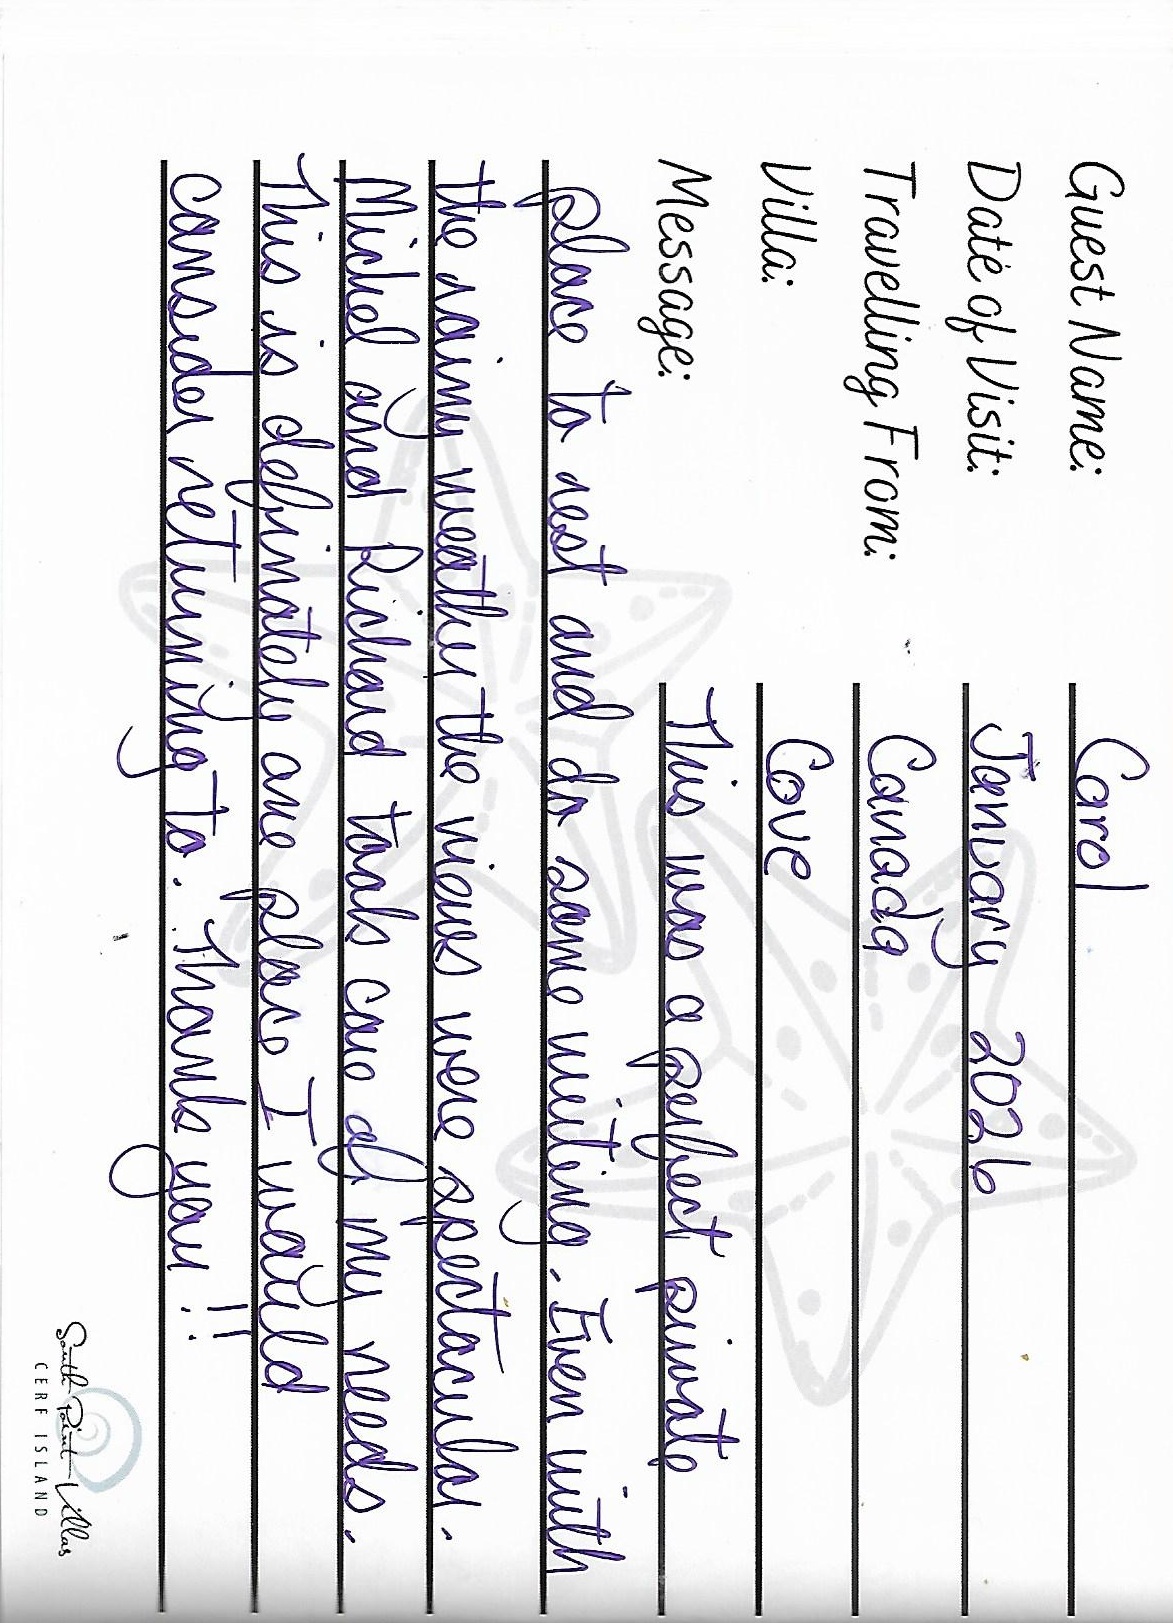 Guest Name: Carol
Date of Visit: January 2026
Travelling From: Canada
Villa: Cove
Message: This was a perfect private
place to rest and do some writing. Even with
the rainy weather the views were spectacular.
Michel and Richard took care of my needs.
This is definately one place I would
consider returning to. Thank you!!
South Point Villas
CERF ISLAND